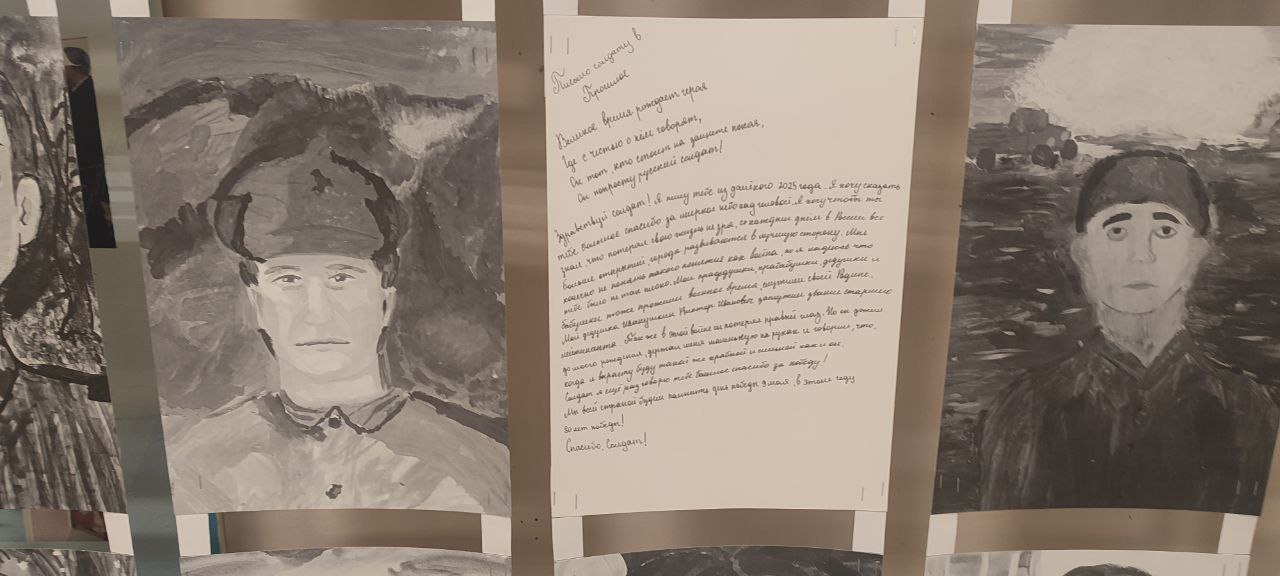 Письмо солдату в
Прошлое
Великое время рождает героя
Где с честью о нём говорят,
Он тот, кто стоит на защите покоя,
Он попросту русский солдат!
Здравствуй солдат! Я пишу тебе из далёкого 2025 года. Я хочу сказать
тебе большое спасибо за мирное небо над головой. Я хочу чтобы ты
знал, что потерял свою жизнь не зря, с каждым днём в России всё
больше открытий, города развиваются в лучшую сторону. Мне
конечно не понять такого понятия как война, но я надеюсь что
тебе было не так плохо. Мои прадедушки, прабабушки, дедушки и
бабушки тоже прожили военное время, служили своей Родине.
Мой дедушка Виктор Иванович заслужил звание старшего
лейтенанта. Так же в этой войне он потерял правый глаз. Но он дожил
до моего рождения, держал меня маленькую на руках и говорил, что
когда я вырасту буду такой же храброй и сильной как и он.
Солдат я ещё раз говорю тебе большое спасибо за победу!
Мы всей страной будем помнить день победы 9 мая, в этом году
80 лет победы!
Спасибо, Солдат!